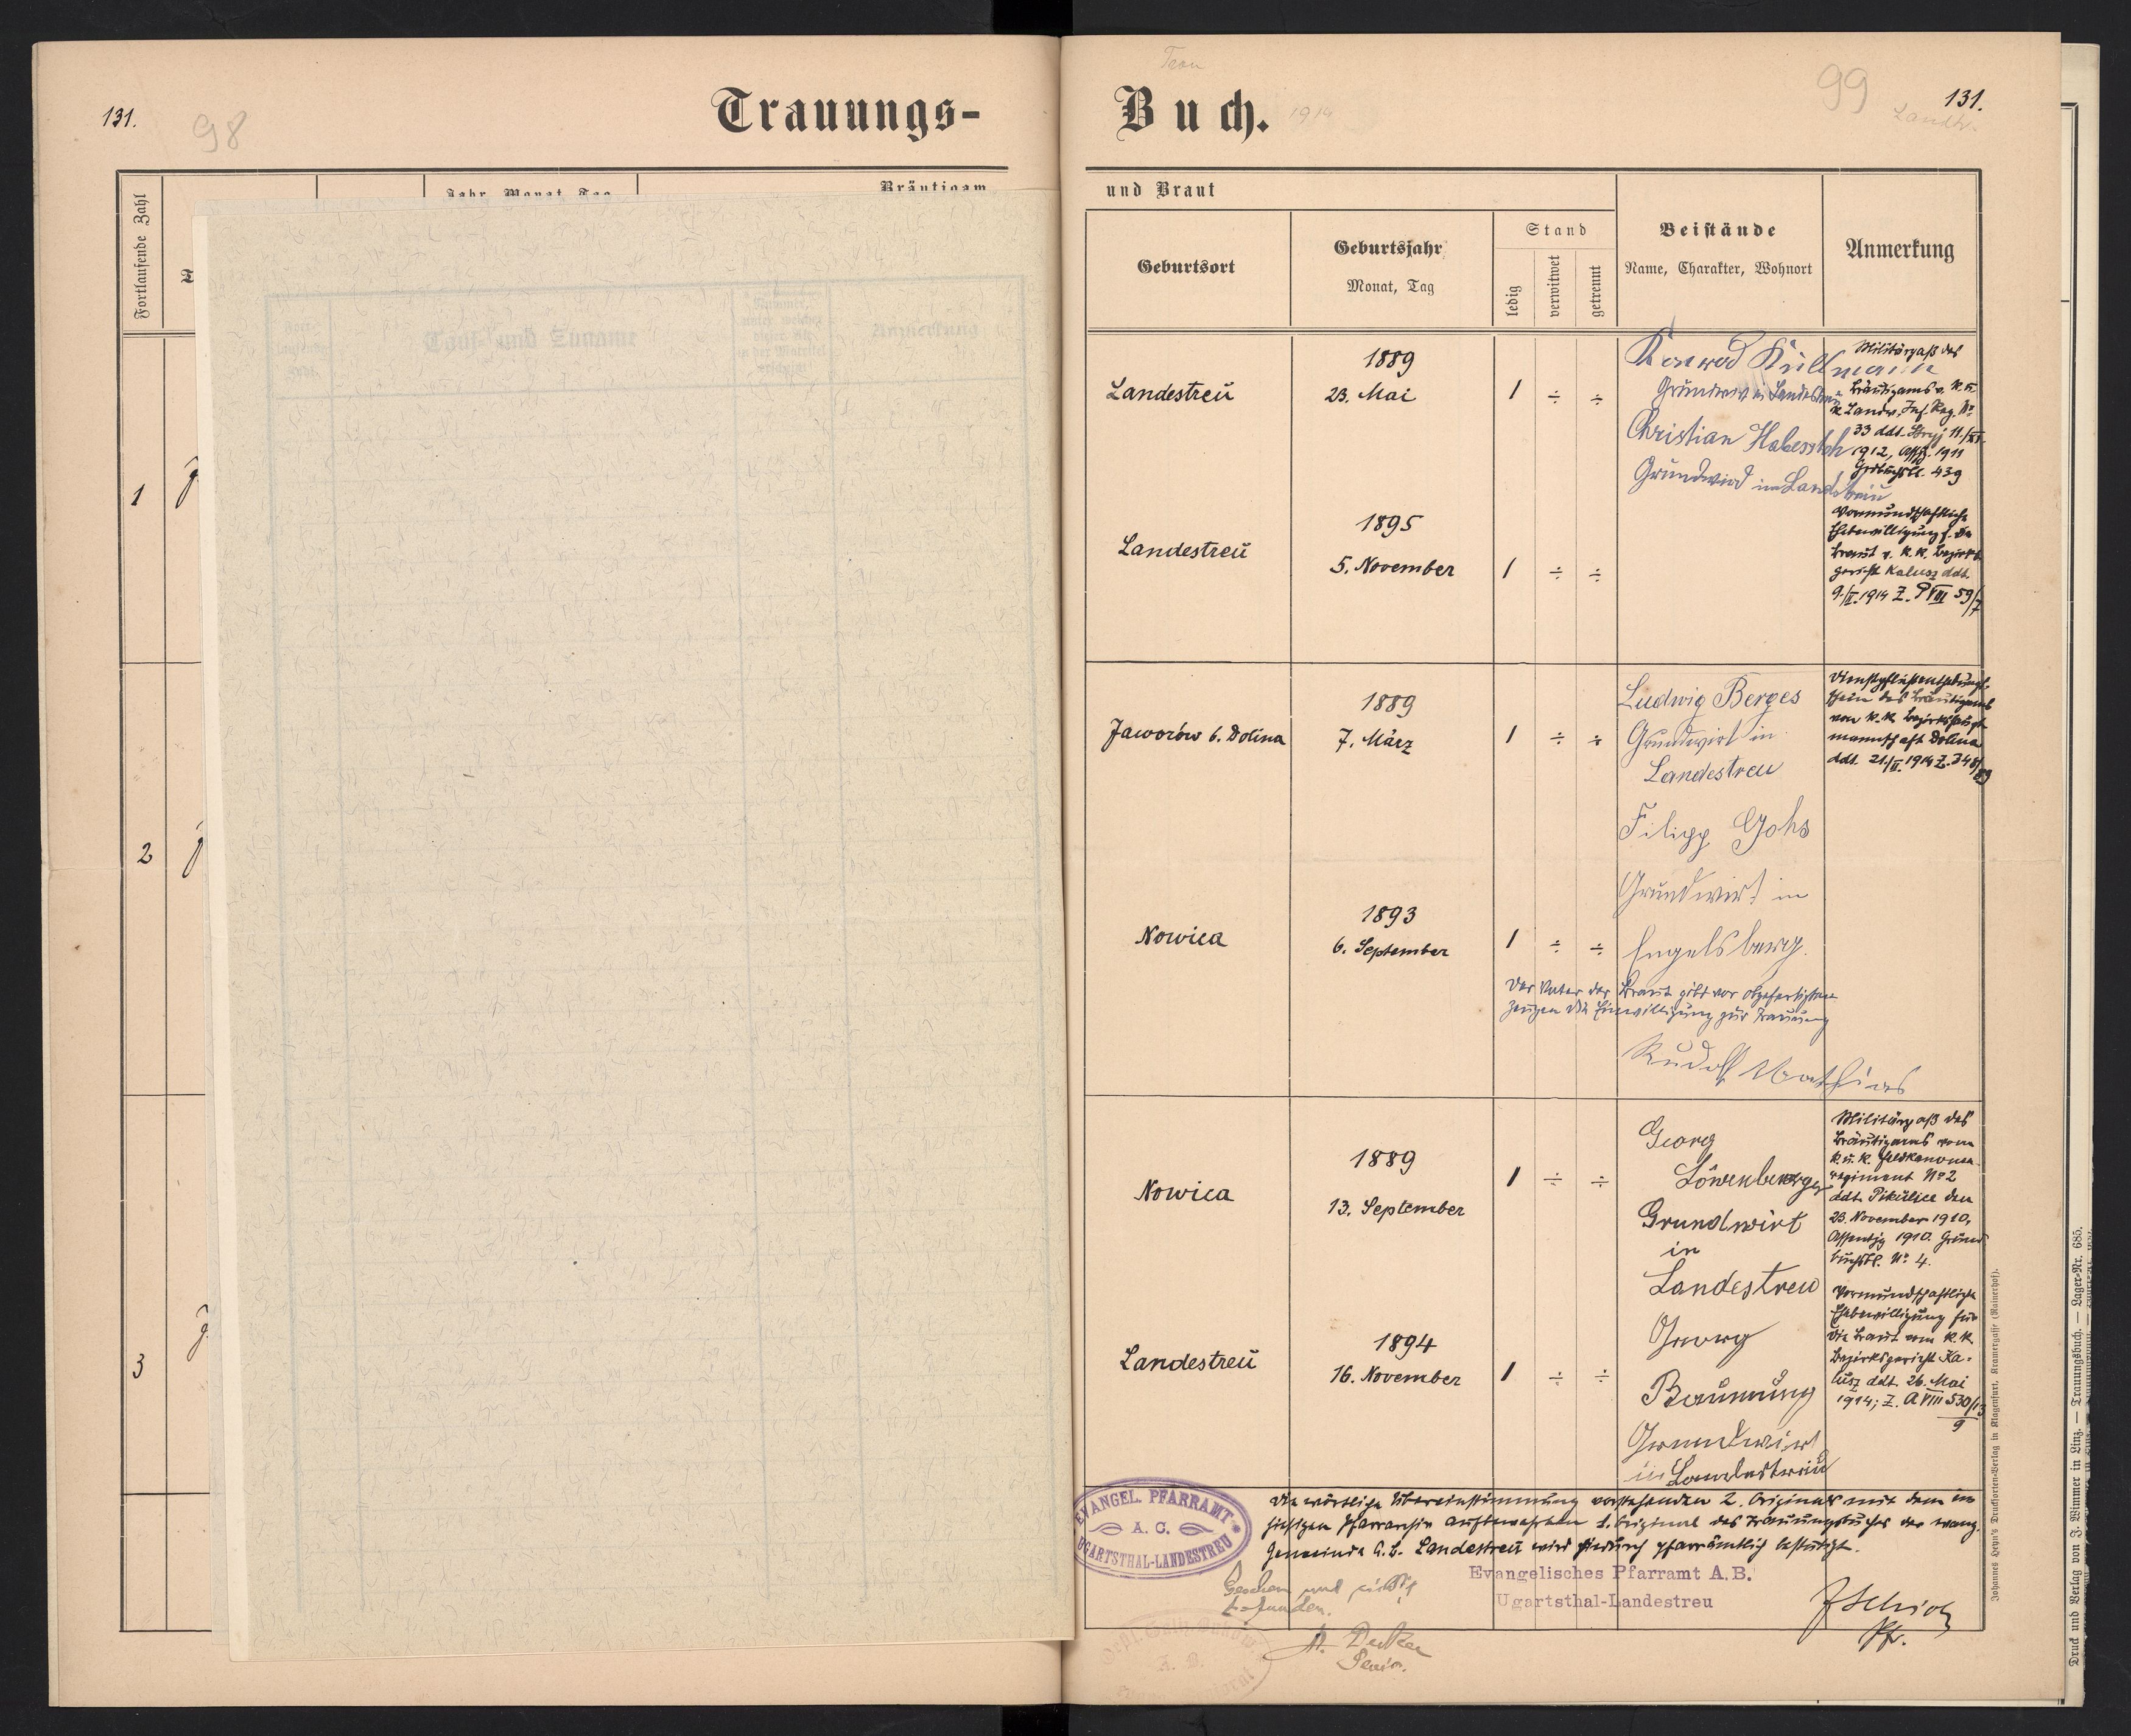 131.
98
Trauungs-
Fortlaufende Zahl
Jahr, Monat, Tag
Bräutigam
1
2
3
Tauf- und Zuname
Anmerkung
Trau
Buch.
1914
99
131.
Landtr.
und Braut
Geburtsort
Geburtsjahr
Monat, Tag
Stand
ledig
verwitwet
getrennt
Beistände
Name, Charakter, Wohnort
Anmerkung
Landestreu
1889
23. Mai
1 ÷ ÷
Konrad Küllmann
Grundwirt in Landestreu
Christian Haberstoh
Grundwird in Landstreu
Militärpaß des
Bräutigams v. k. u.
k. Landw. Inf. Reg. No
33 ddt. Stryj 11./XI.
1912, Assj. 1911
Grdbuchsbl. 439
Landestreu
1895
5. November
1 ÷ ÷
Vormundschaftliche
Ehebewilligung f. die
Braut v. k. k. Bezirks
gericht Kalusz ddt.
9./II. 1914 Z. P VIII 59/7
Jaworów b. Dolina
1889
7. März
1 ÷ ÷
Ludwig Berges
Grundwirt in
Landestreu
Filipp Gohs
Grundwirt in
Engelsberg.
schein des Bräutigams
von k. k. Bezirkshaupt
mannschaft Dolina
ddt. 21./II. 1914 Z.
Nowica
1893
6. September
1 ÷ ÷
Der Vater der Braut gibt vor obgefertigten
Zeugen die Einwilligung zur Trauung
Rudolf Mathias
Nowica
1889
13. September
1 ÷ ÷
Georg
Löwenberger
Grundwirt
in
Landestreu
Georg
Baumung
Grundwirt
in Landestreu
Militärpaß des
Bräutigams vom
k. u. k. Feldkanonen-
regiment No 2
ddt. Pikulice den
23. November 1910,
Assentjg 1910. Grund
buchsbl. No 4.
Landestreu
1894
16. November
1 ÷ ÷
Vormundschaftliche
Ehebewilligung für
die Braut vom k. k.
Bezirksgericht Ka-
lusz ddt. 26. Mai
1914; Z. A VIII 530/13
9
EVANGEL. PFARRAMT
A. C.
UGARTSTHAL-LANDESTREU
Die wörtliche Übereinstimmung vorstehenden 2. Originals mit dem im
hiesigen Pfarrarchiv aufbewahrten 1. Original des Trauungsbuches der evang.
Gemeinde A. B. Landestreu wird hiedurch pfarrämtlich bestätigt.
Evangelisches Pfarramt A.B.
Ugartsthal-Landestreu
Gesehen und richtig
befunden.
Senior.
Pfr.
Johannes Heyn's Drucksorten-Verlag in Klagenfurt, Kramergasse (Rainerhof).
Druck und Verlag von J. Wimmer in Linz. — Trauungsbuch. — Lager-Nr. 685.